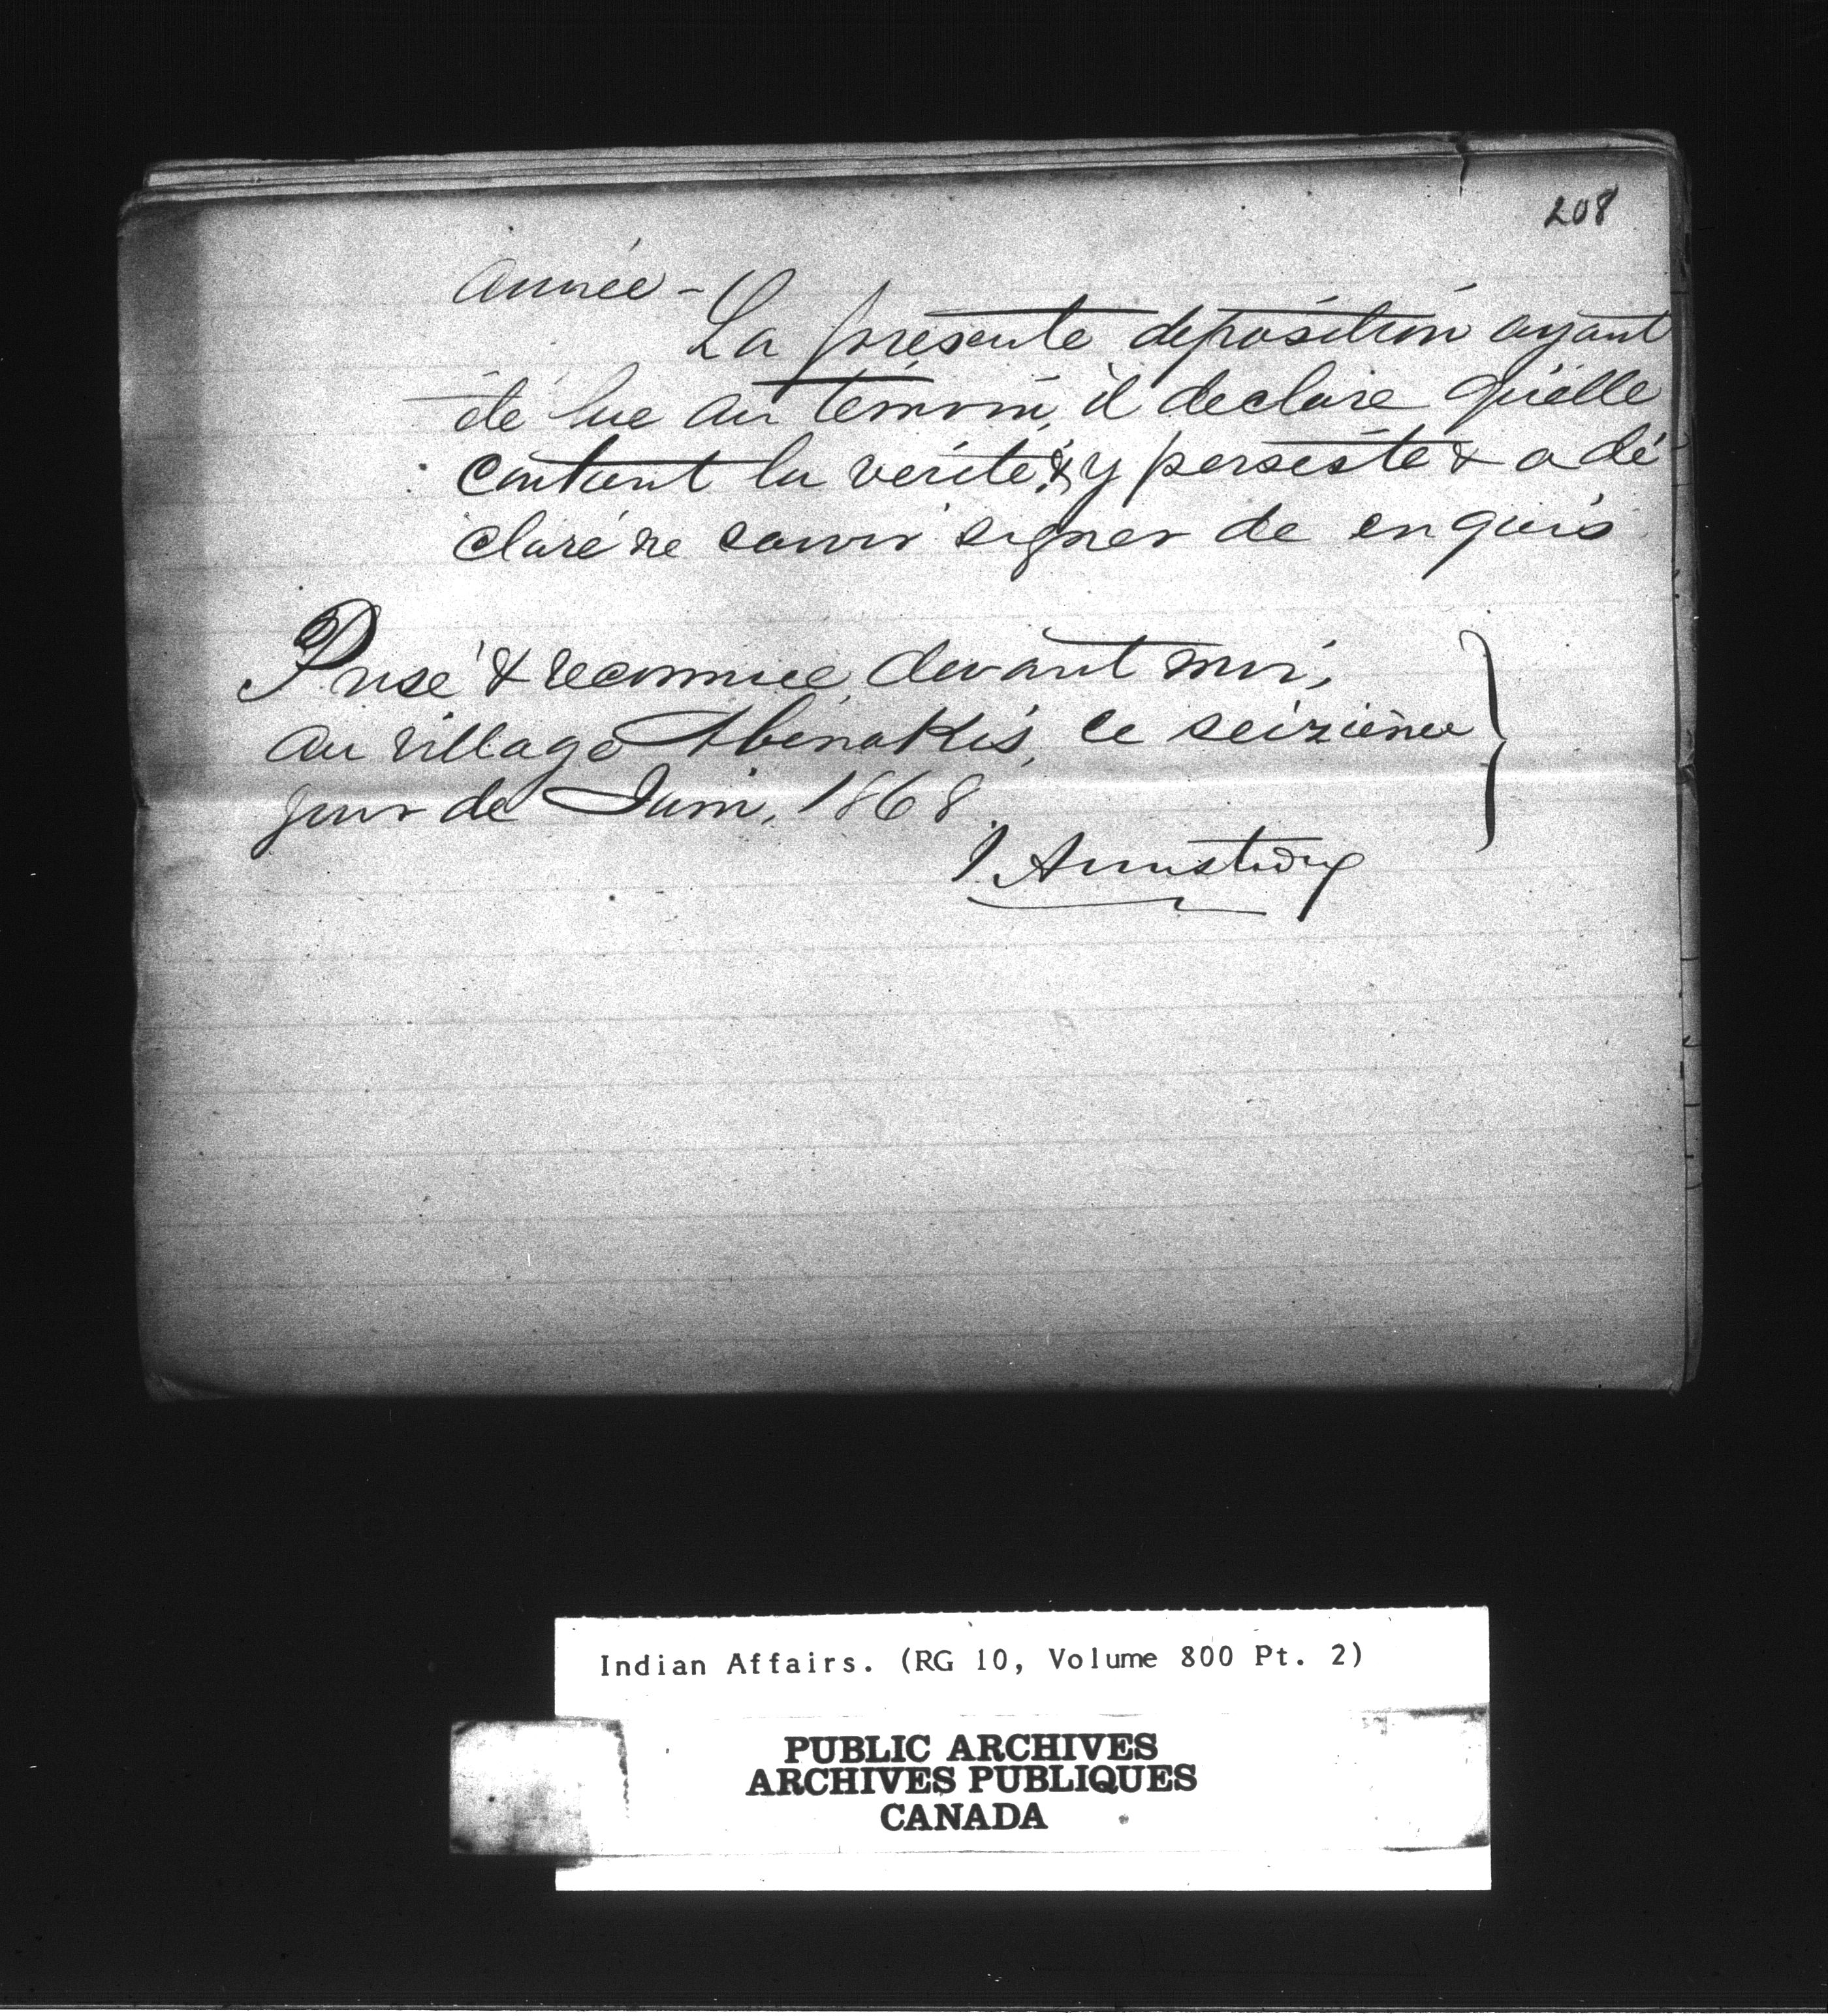 208
année -
La présente déposition ayant
été lue au témoin, il declare qu'elle
contient la vérité, & y persiste & a dé
claré ne savoir signer de en quis
Prise & reconnue devant moi,
au village Abénakis, ce seizième
jour de Juin, 1868.
J Armstrong
Indian Affairs. (RG 10, Volume 800 Pt. 2)
PUBLIC ARCHIVES
ARCHIVES PUBLIQUES
CANADA